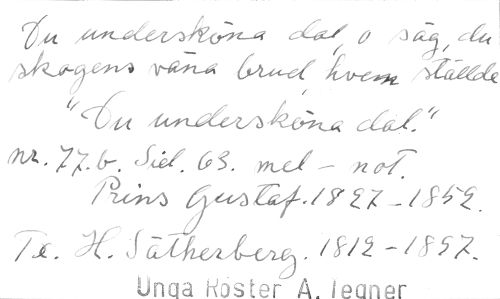 Du undersköna dal, o säg, du
skogens väna brud, hvem ställde
"Du undersköna dal."
nr. 77.b. Sid. 63. mel - not.
Prins Gustaf. 1827-1852.
Te. H. Sätherberg. 1812-1897.
Unga Röster A. Tegnér